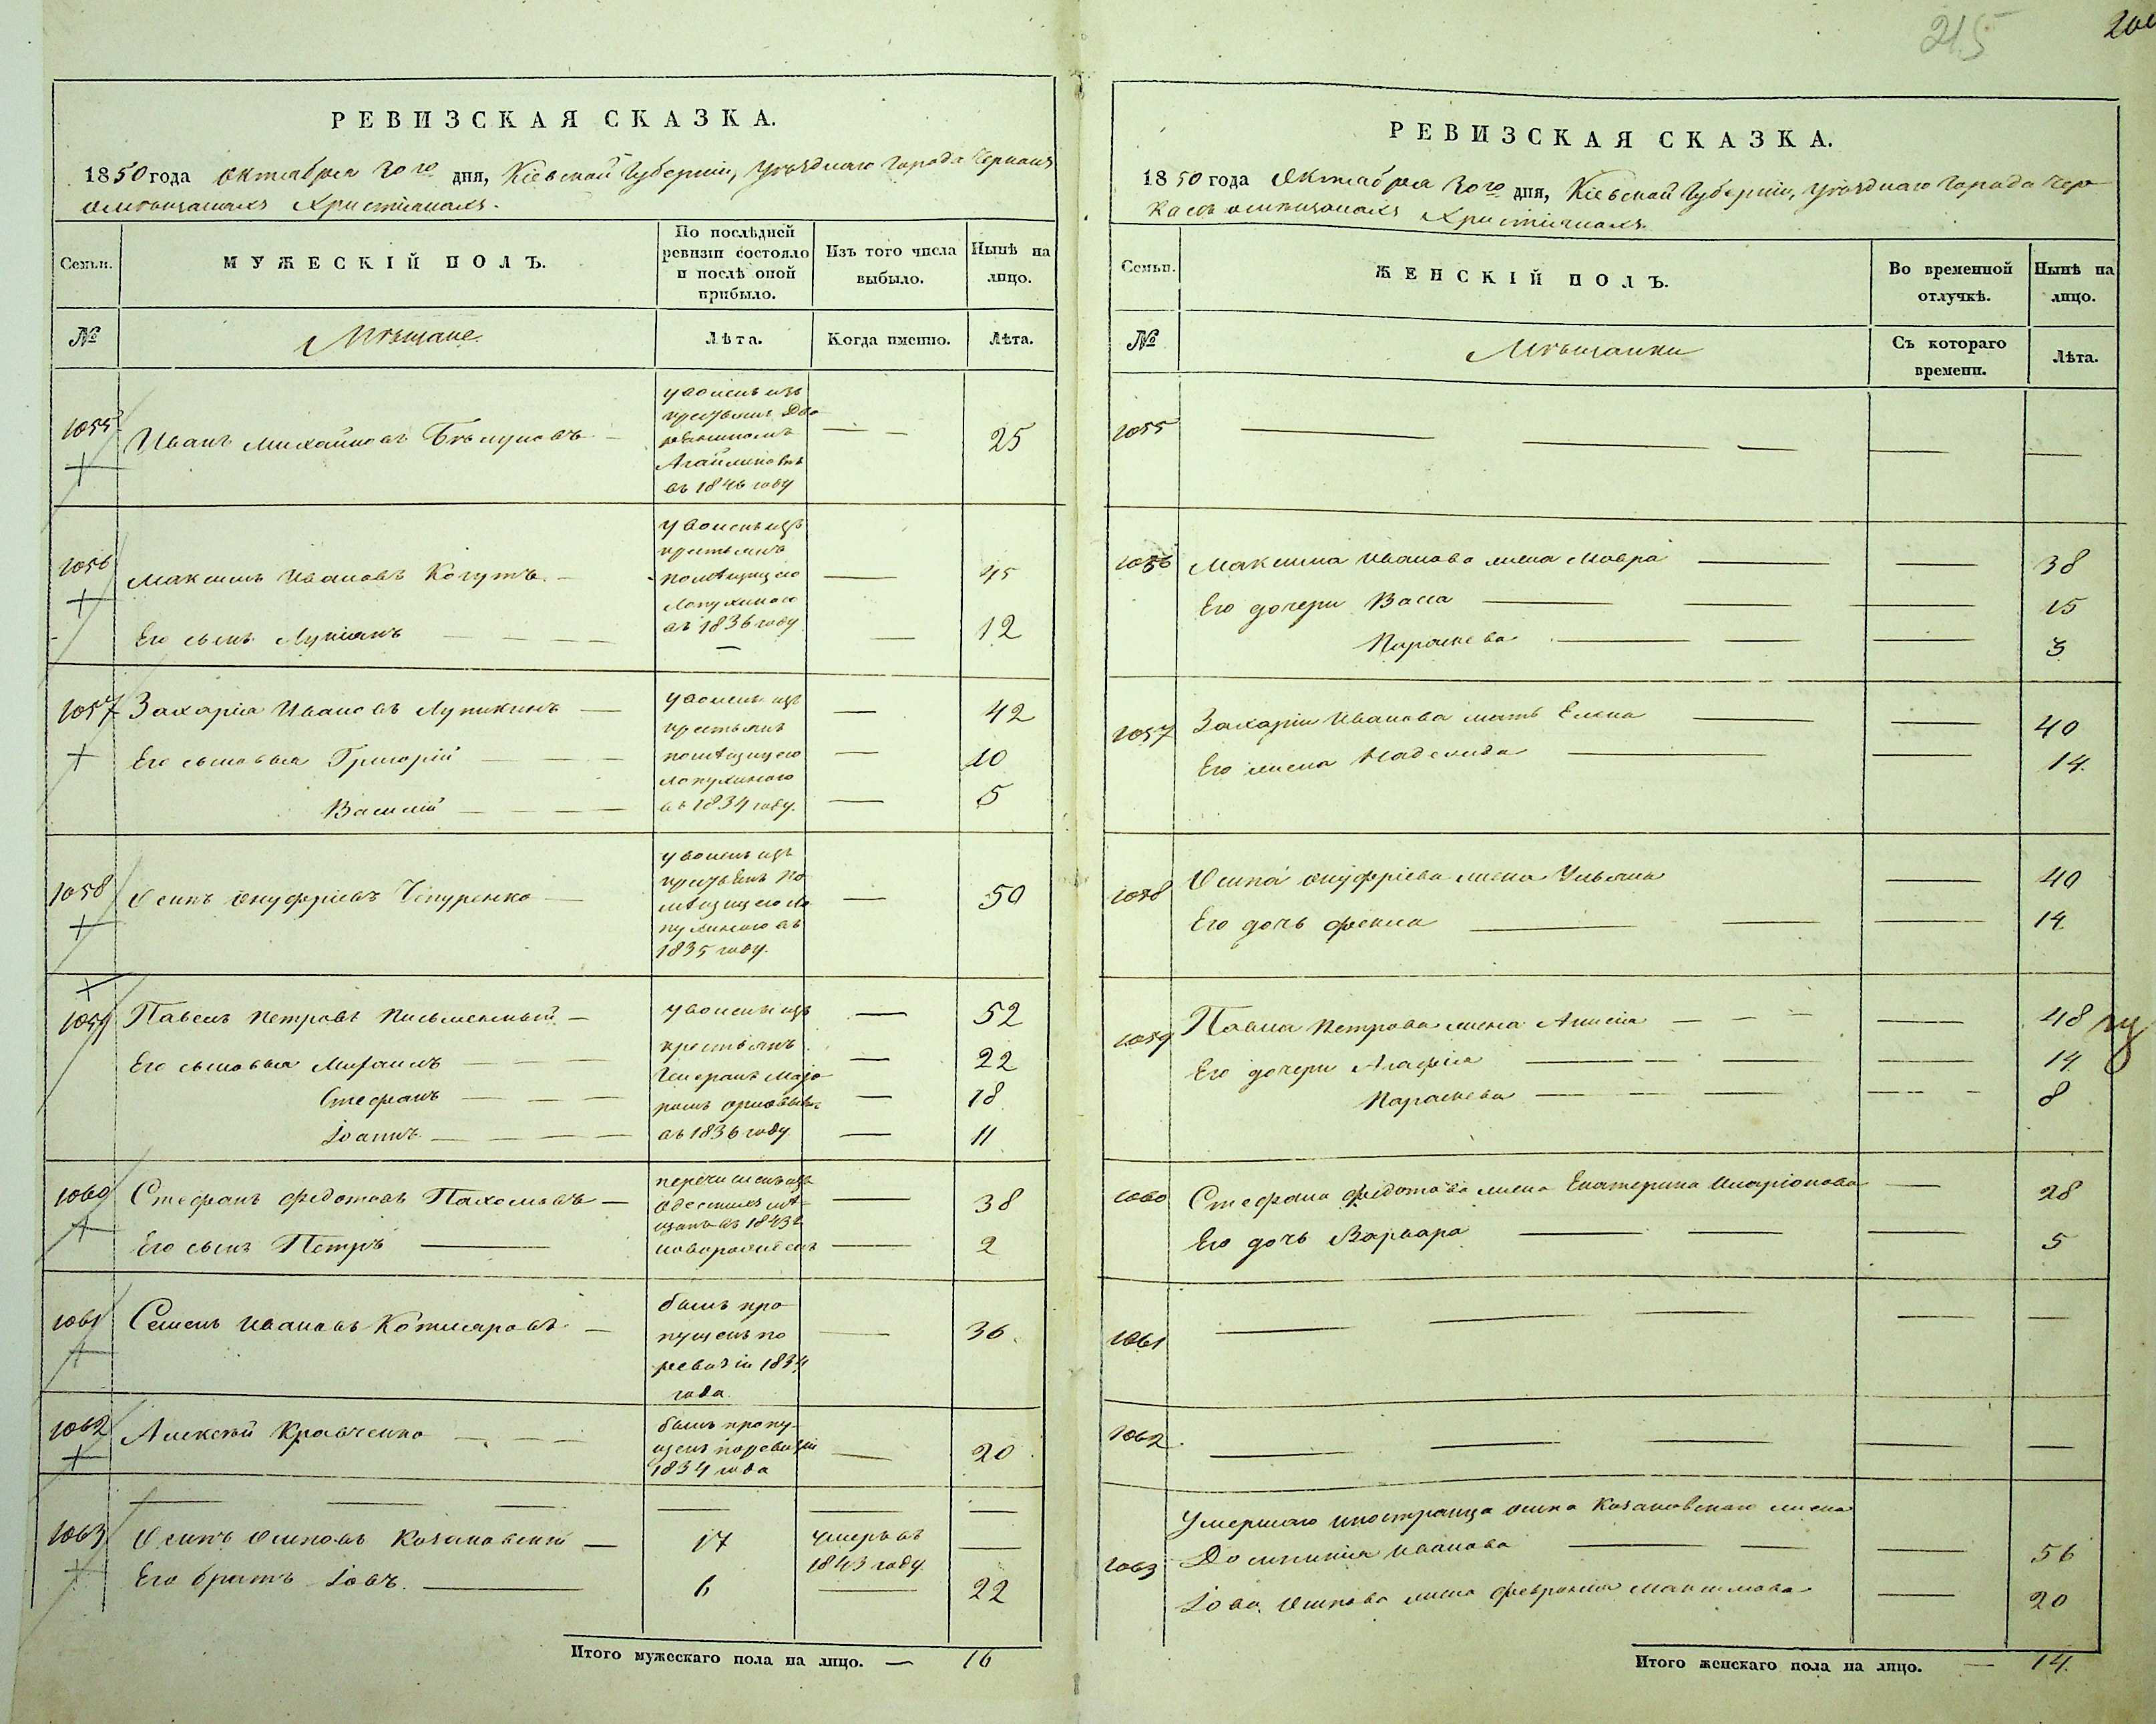 215
РЕВИЗСКАЯ СКАЗКА.
1850 года Октября 30го дня, Кіевской Губерніи, уѣзднаго города Черкасъ
о мѣщанахъ Христіанахъ.
Семьи.
МУЖЕСКІЙ ПОЛЪ.
По послѣдней
ревизіи состояло
и послѣ оной
прибыло.
Изъ того числа
выбыло.
Нынѣ на
лицо.
№
Мѣщане
Лѣта.
Когда именно.
Лѣта.
1055
Иванъ Михайловъ Бѣлуновъ
уволенъ изъ
крестьянъ
въ 1846 году
25
1056
Максимъ Ивановъ Когутъ
уволенъ изъ
крестьянъ
помѣщицею
Лопухиною
въ 1836 году
45
Его сынъ Лукіянъ
12
1057
Захарія Ивановъ Лупикинъ
уволенъ изъ
крестьянъ
помѣщицею
Лопухиною
въ 1834 году.
42
Его сыновья Григорій
10
Василій
5
1058
Осипъ Онуфріевъ Чепуренко
уволенъ изъ
крестьянъ по
мѣщицею Ло
пухиною въ
1835 году.
50
1059
Павелъ Петровъ Письменный
уволенъ изъ
крестьянъ
Генералъ Маіо
ромъ
въ 1836 году
52
Его сыновья Михаилъ
22
Стефанъ
18
Іоаннъ
11
1060
Стефанъ Федотовъ Пахомовъ
перечисленъ изъ
Одесскихъ мѣ
щанъ въ 1843 г
38
Его сынъ Петръ
новорожденъ
2
1061
Семенъ Ивановъ Котляровъ
былъ про
пущенъ по
ревизіи 1834
года
36
1062
Алексѣй Кравченко
былъ пропу
щенъ по ревизіи
1834 года
20
1063
Осипъ Осиповъ Козановскій
17
умеръ въ
1843 году
Его братъ Іовъ.
6
22
Итого мужескаго пола на лицо. — 16
РЕВИЗСКАЯ СКАЗКА.
1850 года Октября 30го дня, Кіевской Губерніи, уѣзднаго города Чер
касъ о мѣщанахъ Христіанахъ.
Семьи.
ЖЕНСКІЙ ПОЛЪ.
Во временной
отлучкѣ.
Нынѣ на
лицо.
№
Мѣщанки
Съ котораго
времени.
Лѣта.
1055
1056
Максима Иванова жена Мавра
38
Его дочери Васса
15
Параскева
3
1057
Захаріи Иванова мать Елена
40
Его жена Надежда
14
1058
Осипа Онуфріева жена Ульяна
40
Его дочь Фекла
14
1059
Павла Петрова жена Анисія
48
Его дочери Агафія
14
Параскева
8
1060
Стефана Федотова жена Екатерина Иларіонова
28
Его дочь Варвара
5
1061
1062
1063
Умершаго иностранца Осипа Козановскаго жена
Доминикія Иванова
56
Іова Осипова жена Февронія Максимова
20
Итого женскаго пола на лицо. — 14.